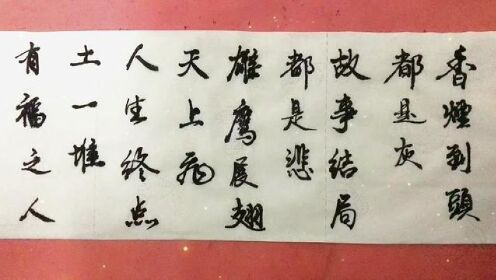 香煙到頭
都是灰
故事结局
都是悲
雄鹰展翅
天上飛
人生终点
土一堆
有福之人